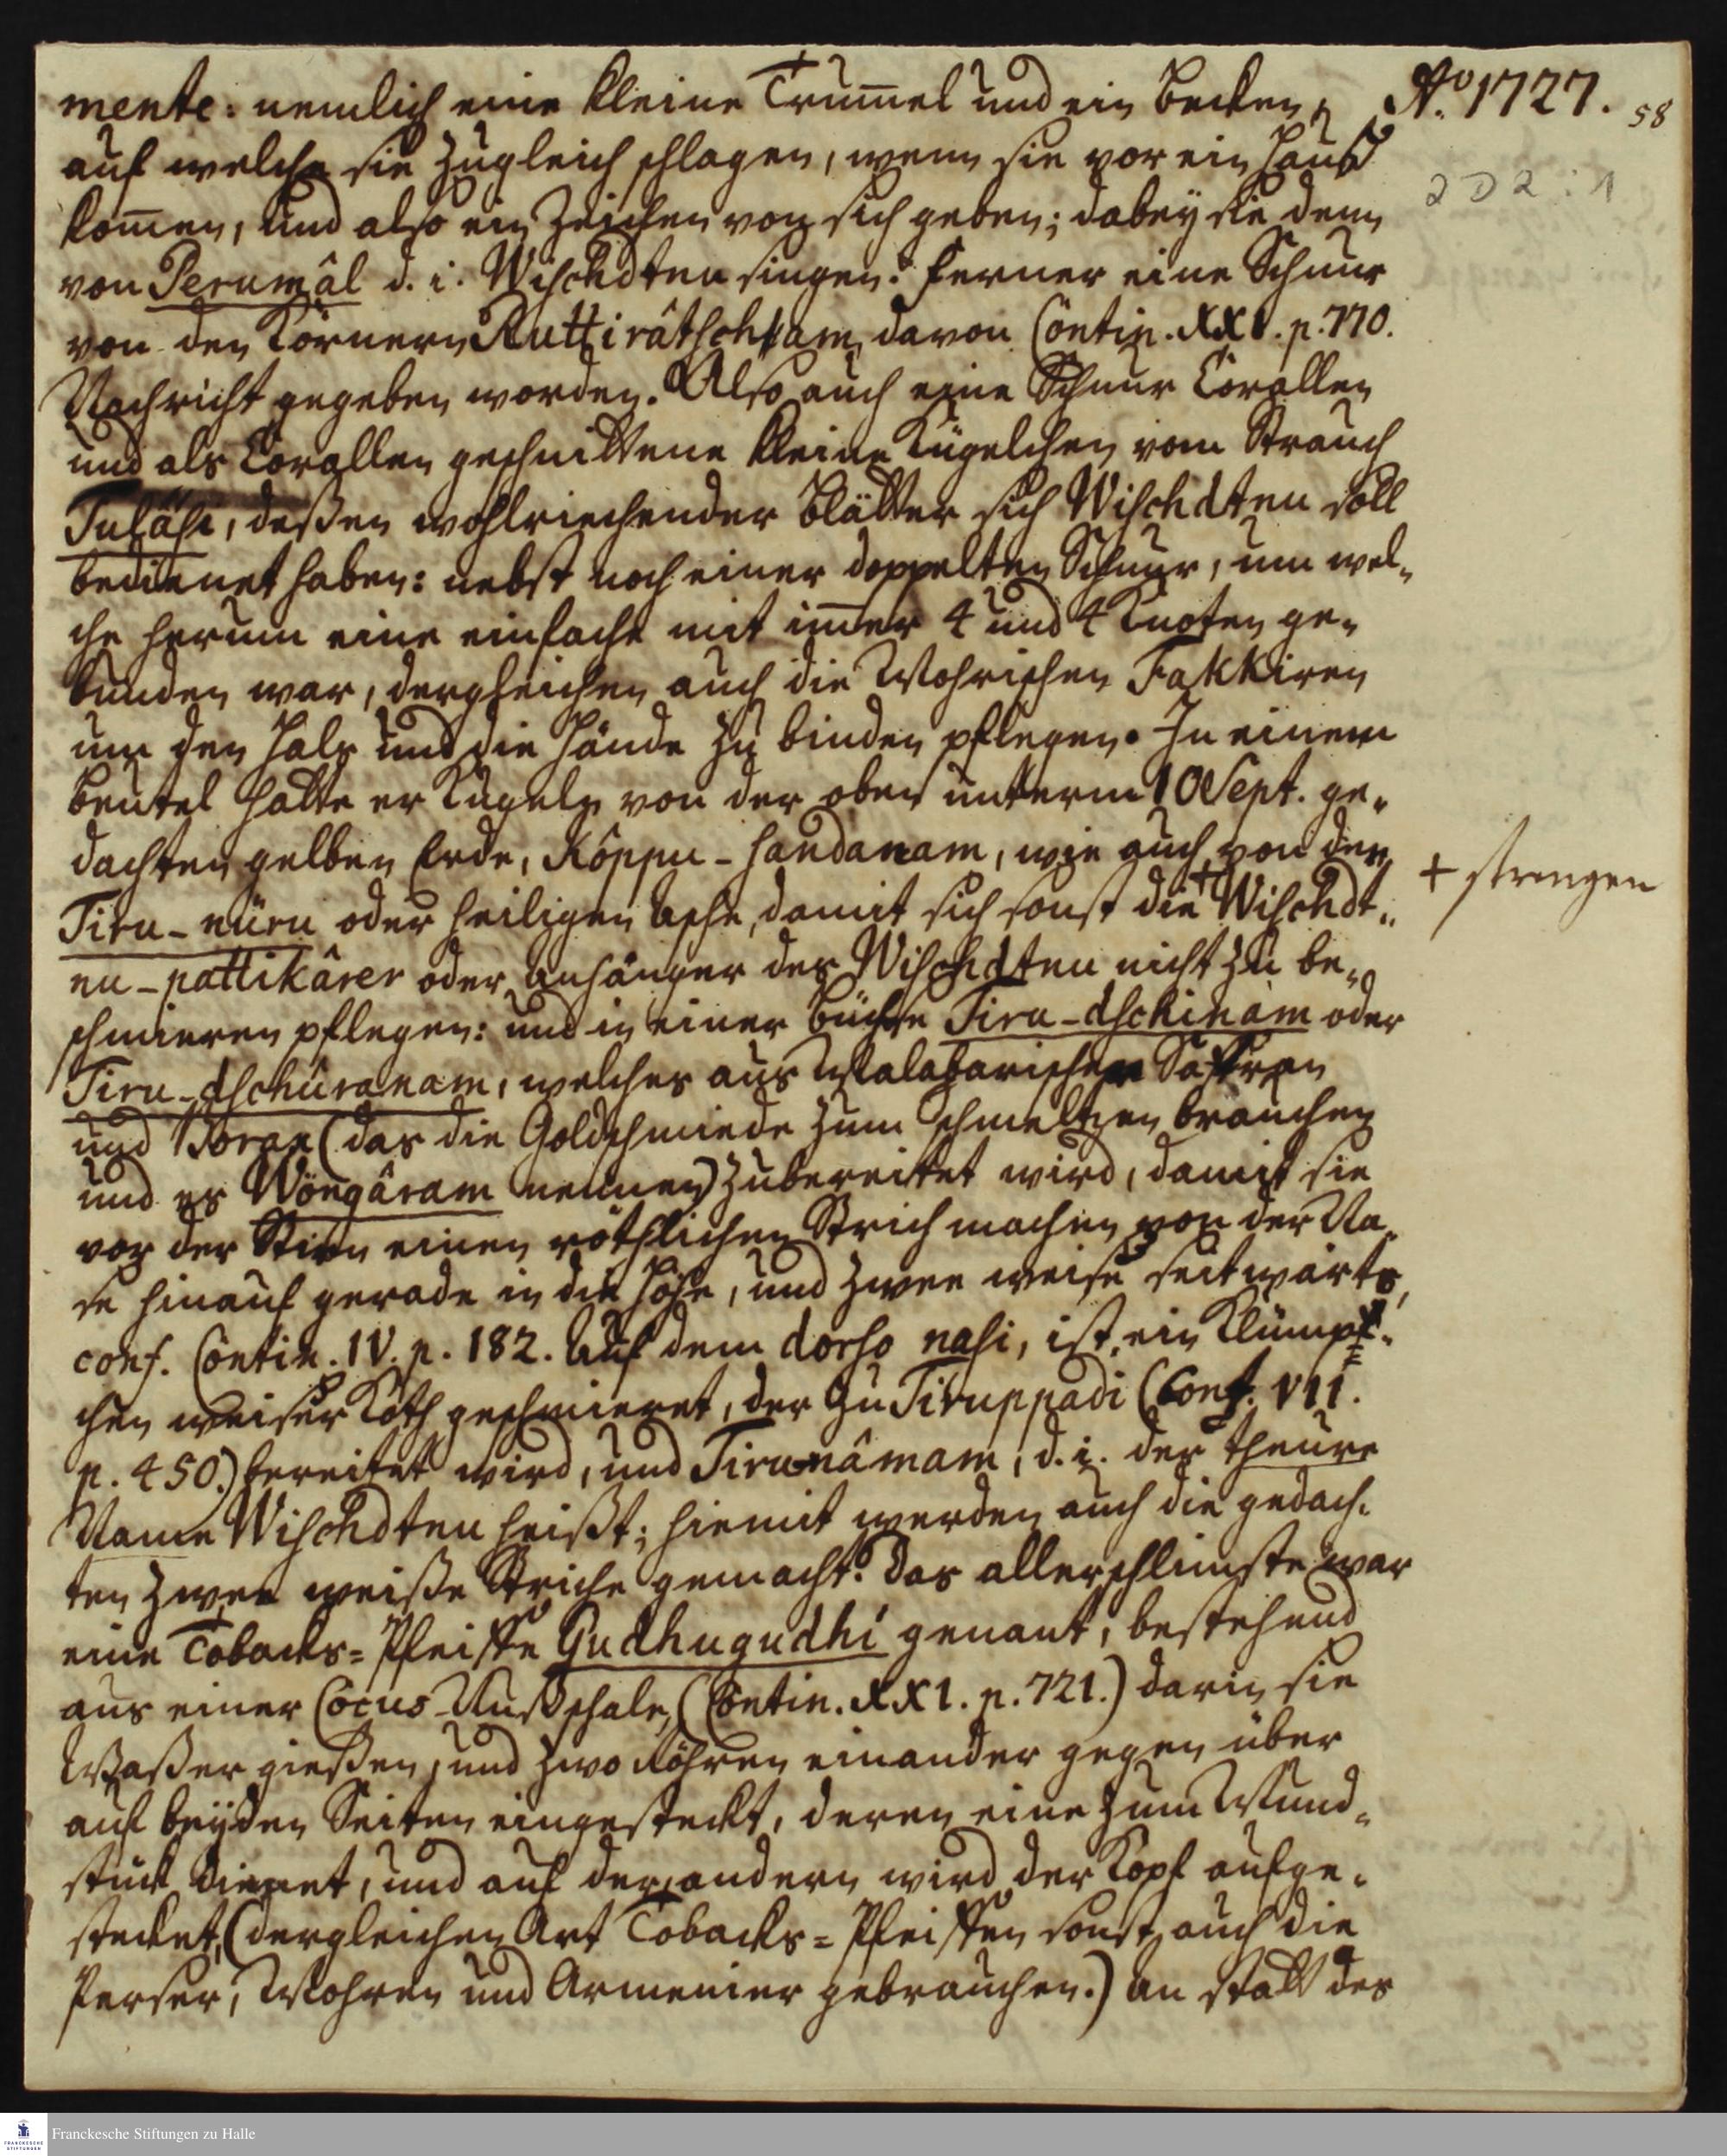 mente: nemlich eine kleine Trum̄el und ein Becken,
Ao 1727.
58
auf welche sie zugleich schlagen, wenn sie vor ein Hauß
2 D 2 : 1
kom̄en, und also ein Zeichen von sich geben; dabey sie denn
von Perumâl d. i. Wischdtnu singen: ferner eine Schnur
von den Körnern Ruttirâtscham, davon Contin. XXI. p. 770.
Nachricht gegeben worden. Also auch eine Schnur Corallen
und als Corallen geschnittene kleine Kügelchen vom Strauch
Tulâsi, deßen wohlriechender Blätter sich Wischdtnu soll
bedienet haben: nebst noch einer doppelten Schnur, um wel-
che herum eine einfache mit im̄er 4 und 4 Knoten ge-
bunden war, dergleichen auch die Mohrischen Fakkiren
um den Hals und die Hände zu binden pflegen. In einem
Beutel hatte er Kugeln von der oben unterm 10 Sept. ge-
dachten gelben Erde, Kôppu-sandanam, wie auch von der
Tiru-nûru oder heiligen Asche, damit sich sonst die + Wischdt-
+ strengen
nu-pattikârer oder Anhänger des Wischdtnu nicht zu be-
schmieren pflegen: und in einer Büchse Tiru-dschinam oder
Tiru-dschûranam, welches aus Malabarischen Saffran
und Borax (das die Goldschmiede zum schmeltzen brauchen
und es Wöngâram nennen) zubereitet wird, damit sie
vor der Stirn einen röthlichen Strich machen von der Na-
se hinauf gerade in die Höhe, und zwee weise seitwärts,
conf. Contin. IV. p. 182. Auf dem dorso nasi, ist ein Klümp-
chen weiser Koth geschmieret, der zu Tiruppadi (Cont. VII.
p. 450.) bereitet wird, und Tirunâmam, d. i. der theure
Name Wischdtnu heißt; hiemit werden auch die gedach-
ten zwee weiße Striche gemacht. Das allerschlimste war
eine Tobacks-Pfeiffe Gudhugudhi genant, bestehend
aus einer Cocus-Nußschale, (Contin. XXI. p. 721.) darin sie
Waßer gießen, und zwo Röhren einander gegen über
auf beyden Seiten eingesteckt, deren eine zum Mund-
stück dienet, und auf der andern wird der Kopf aufge-
stecket, (dergleichen Art Tobacks-Pfeiffen sonst auch die
Perser, Mohren und Armenier gebrauchen.) An statt des
Franckesche Stiftungen zu Halle